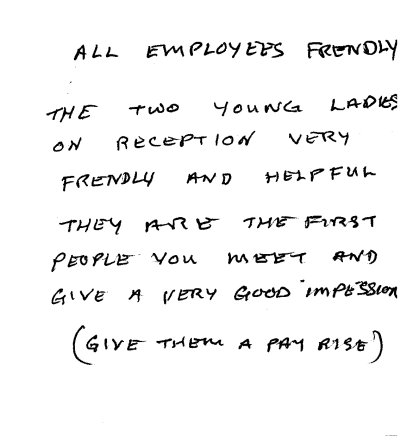 ALL EMPLOYEES FRENDLY
THE TWO YOUNG LADIES
ON RECEPTION VERY
FRENDLY AND HELPFUL
THEY ARE THE FIRST
PEOPLE YOU MEET AND
GIVE A VERY GOOD IMPESSION
(GIVE THEM A PAY RISE)